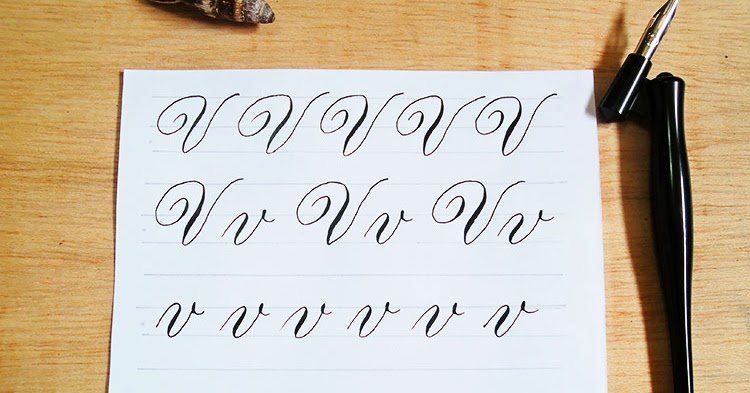 V V V V V
V v V v V v
v v v v v v